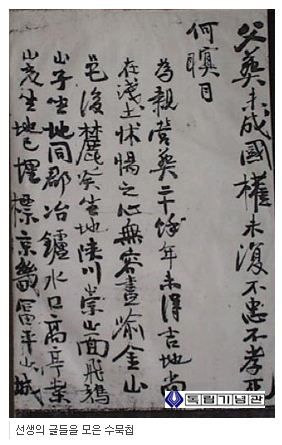 父葬未成國權未復不忠不孝死
何瞑目
為親營葬二十餘年未得吉地尚
在淺土怵惕之心無容盡喩金山
邑後麓癸坐地陜川崇山面飛鵝
山子坐地同郡冶鑪水口高亭案
山亥坐地已埋標京畿富平山城
독립기념관
선생의 글들을 모은 수묵첩